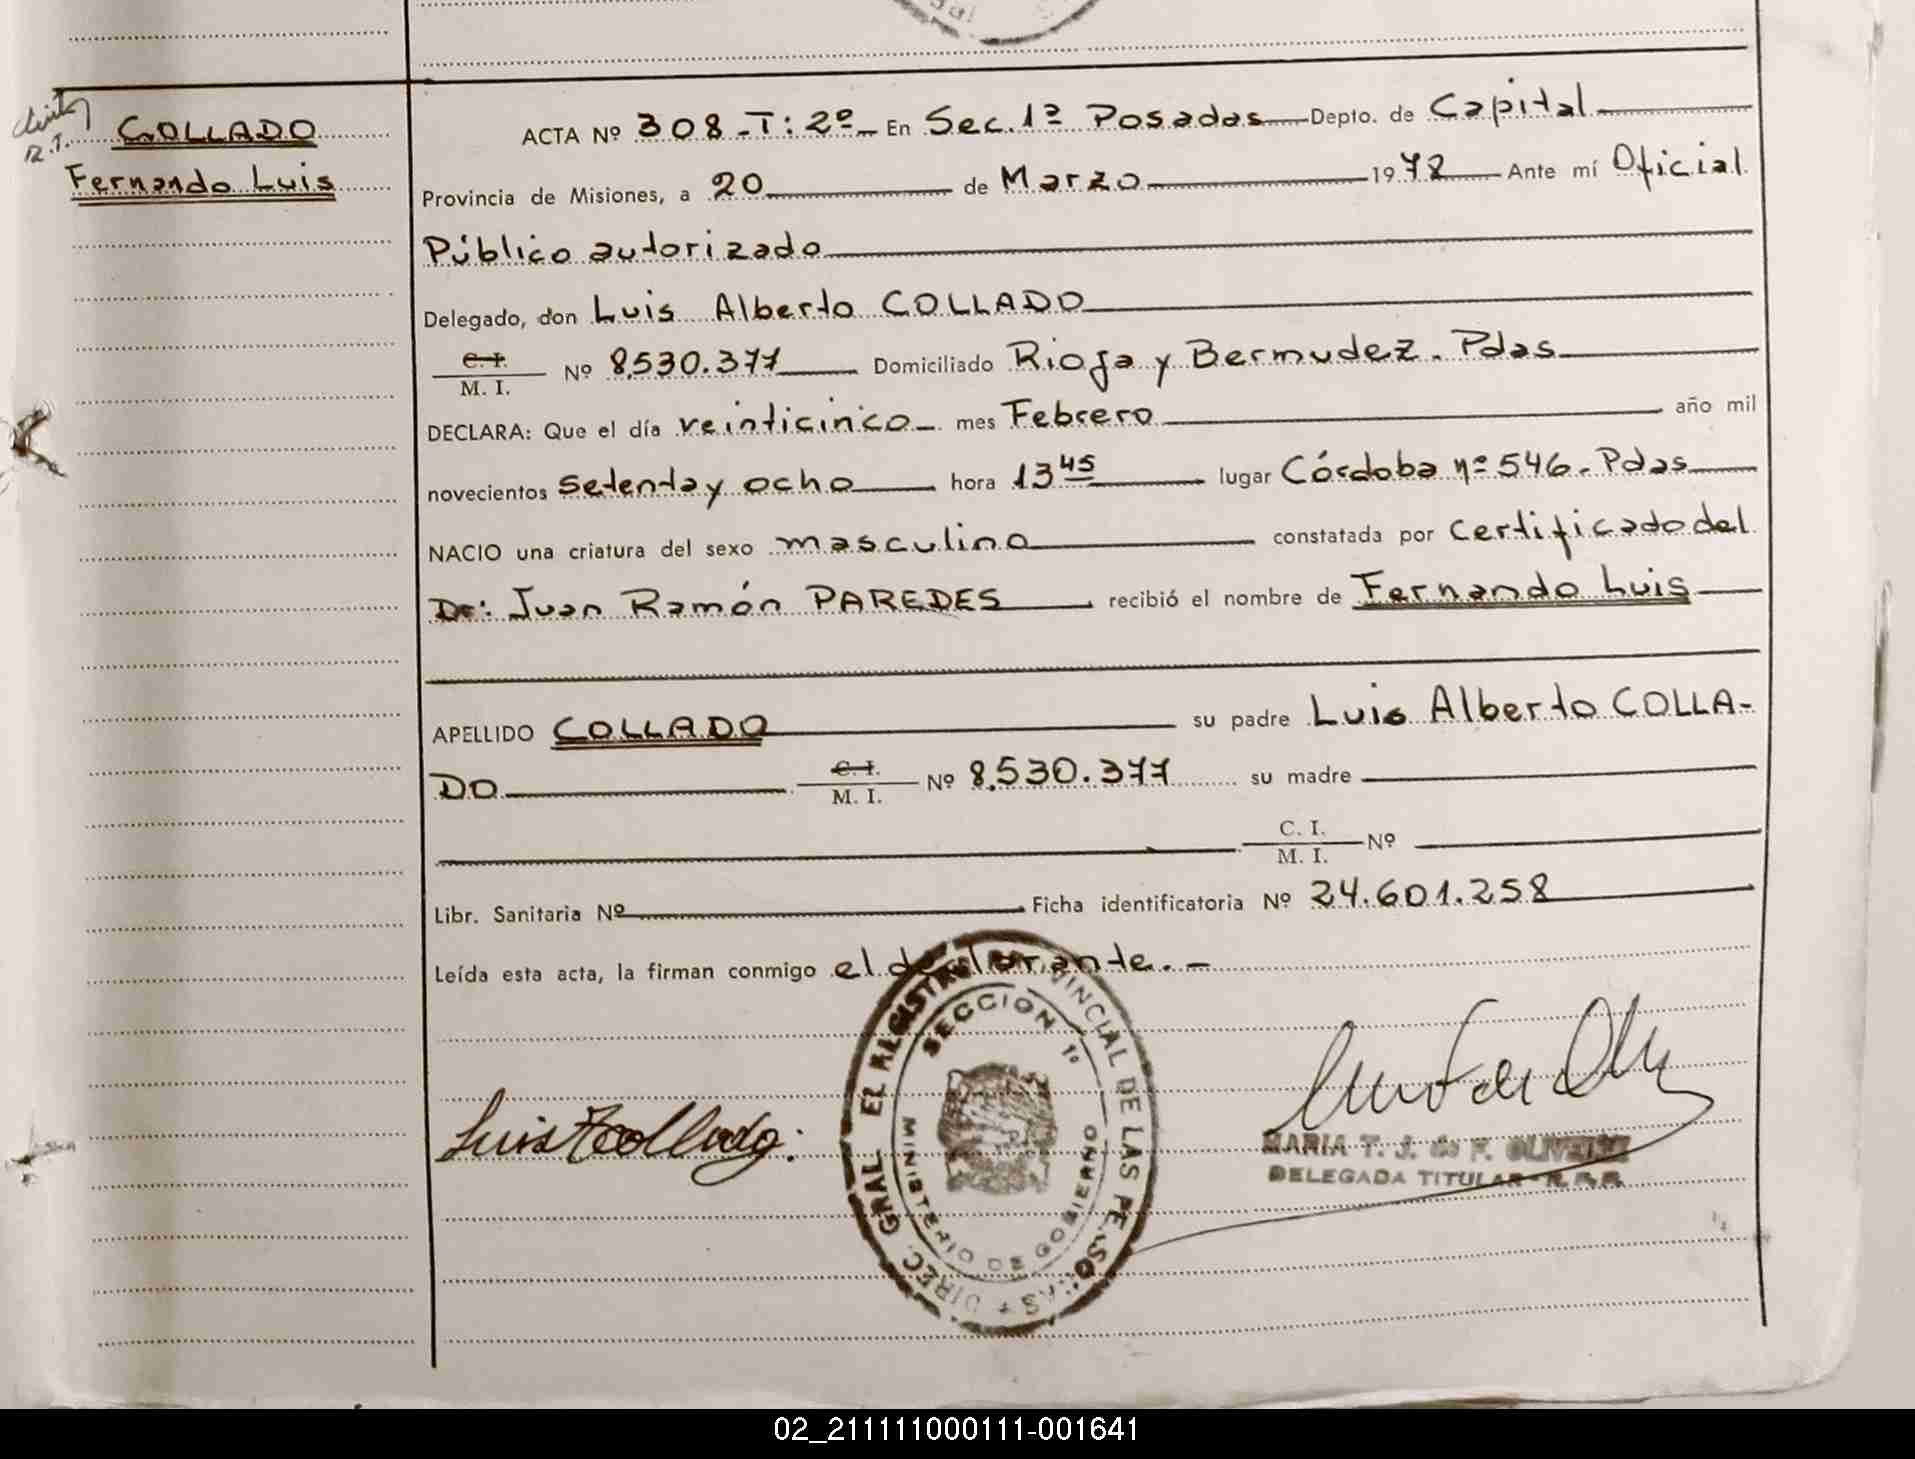 COLLADO
Fernando Luis
ACTA Nº 308 - T: 2º - En Sec. 1ª Posadas Depto. de Capital
Provincia de Misiones, a 20 de Marzo 1978 Ante mí Oficial
Público autorizado
Delegado, don Luis Alberto COLLADO
C. I.
M. I. Nº 8.530.377 Domiciliado Rioja y Bermudez. Pdas
DECLARA: Que el día veinticinco mes Febrero año mil
novecientos setenta y ocho hora 13 45 lugar Córdoba nº 546. Pdas
NACIO una criatura del sexo masculino constatada por certificado del
Dr: Juan Ramón PAREDES recibió el nombre de Fernando Luis
APELLIDO COLLADO su padre Luis Alberto COLLA-
DO C. I. M. I. Nº 8.530.377 su madre
C. I.
M. I. Nº
Libr. Sanitaria Nº Ficha identificatoria Nº 24.601.258
Leída esta acta, la firman conmigo el declarante. -
DIREC. GRAL EL REGISTRO PROVINCIAL DE LAS PERSONAS
SECCION 1º
MINISTERIO DE GOBIERNO
Luis Collado
MARIA T. J. de F. OLIVEIRA
DELEGADA TITULAR - R. P. P.
02_211111000111-001641